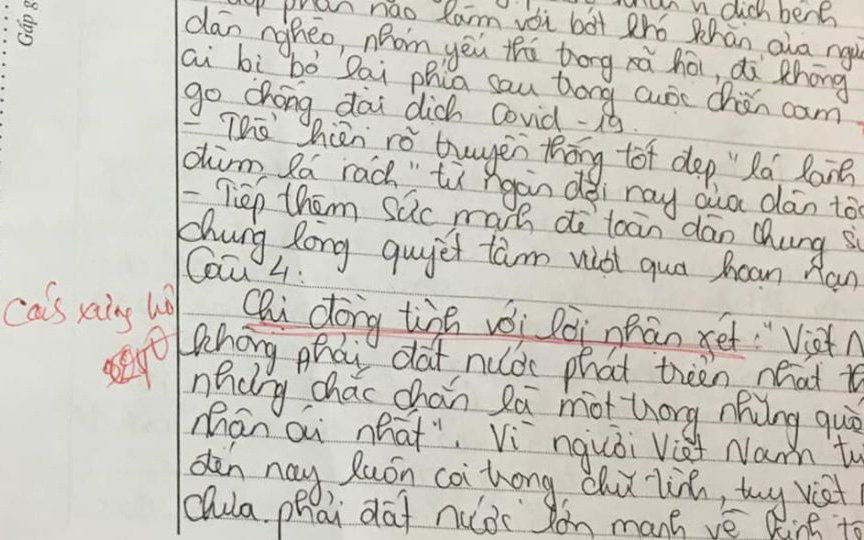 Gấp g
phần nào làm vơi bớt khó khăn của ngư
dân nghèo, nhóm yếu thế trong xã hội, để không
ai bị bỏ lại phía sau trong cuộc chiến cam
go chống đại dịch Covid-19.
- Thể hiện rõ truyền thống tốt đẹp "lá lành
đùm lá rách" từ ngàn đời nay của dân tộc
- Tiếp thêm sức mạnh để toàn dân chung s
chung lòng quyết tâm vượt qua hoạn nạn
Câu 4:
Cách xưng hô
Chị đồng tình với lời nhận xét: "Việt N
không phải đất nước phát triển nhất t
nhưng chắc chắn là một trong những quố
nhân ái nhất". Vì người Việt Nam từ
đến nay luôn coi trọng chữ tình, tuy Việt
chưa phải đất nước lớn mạnh về kinh tế